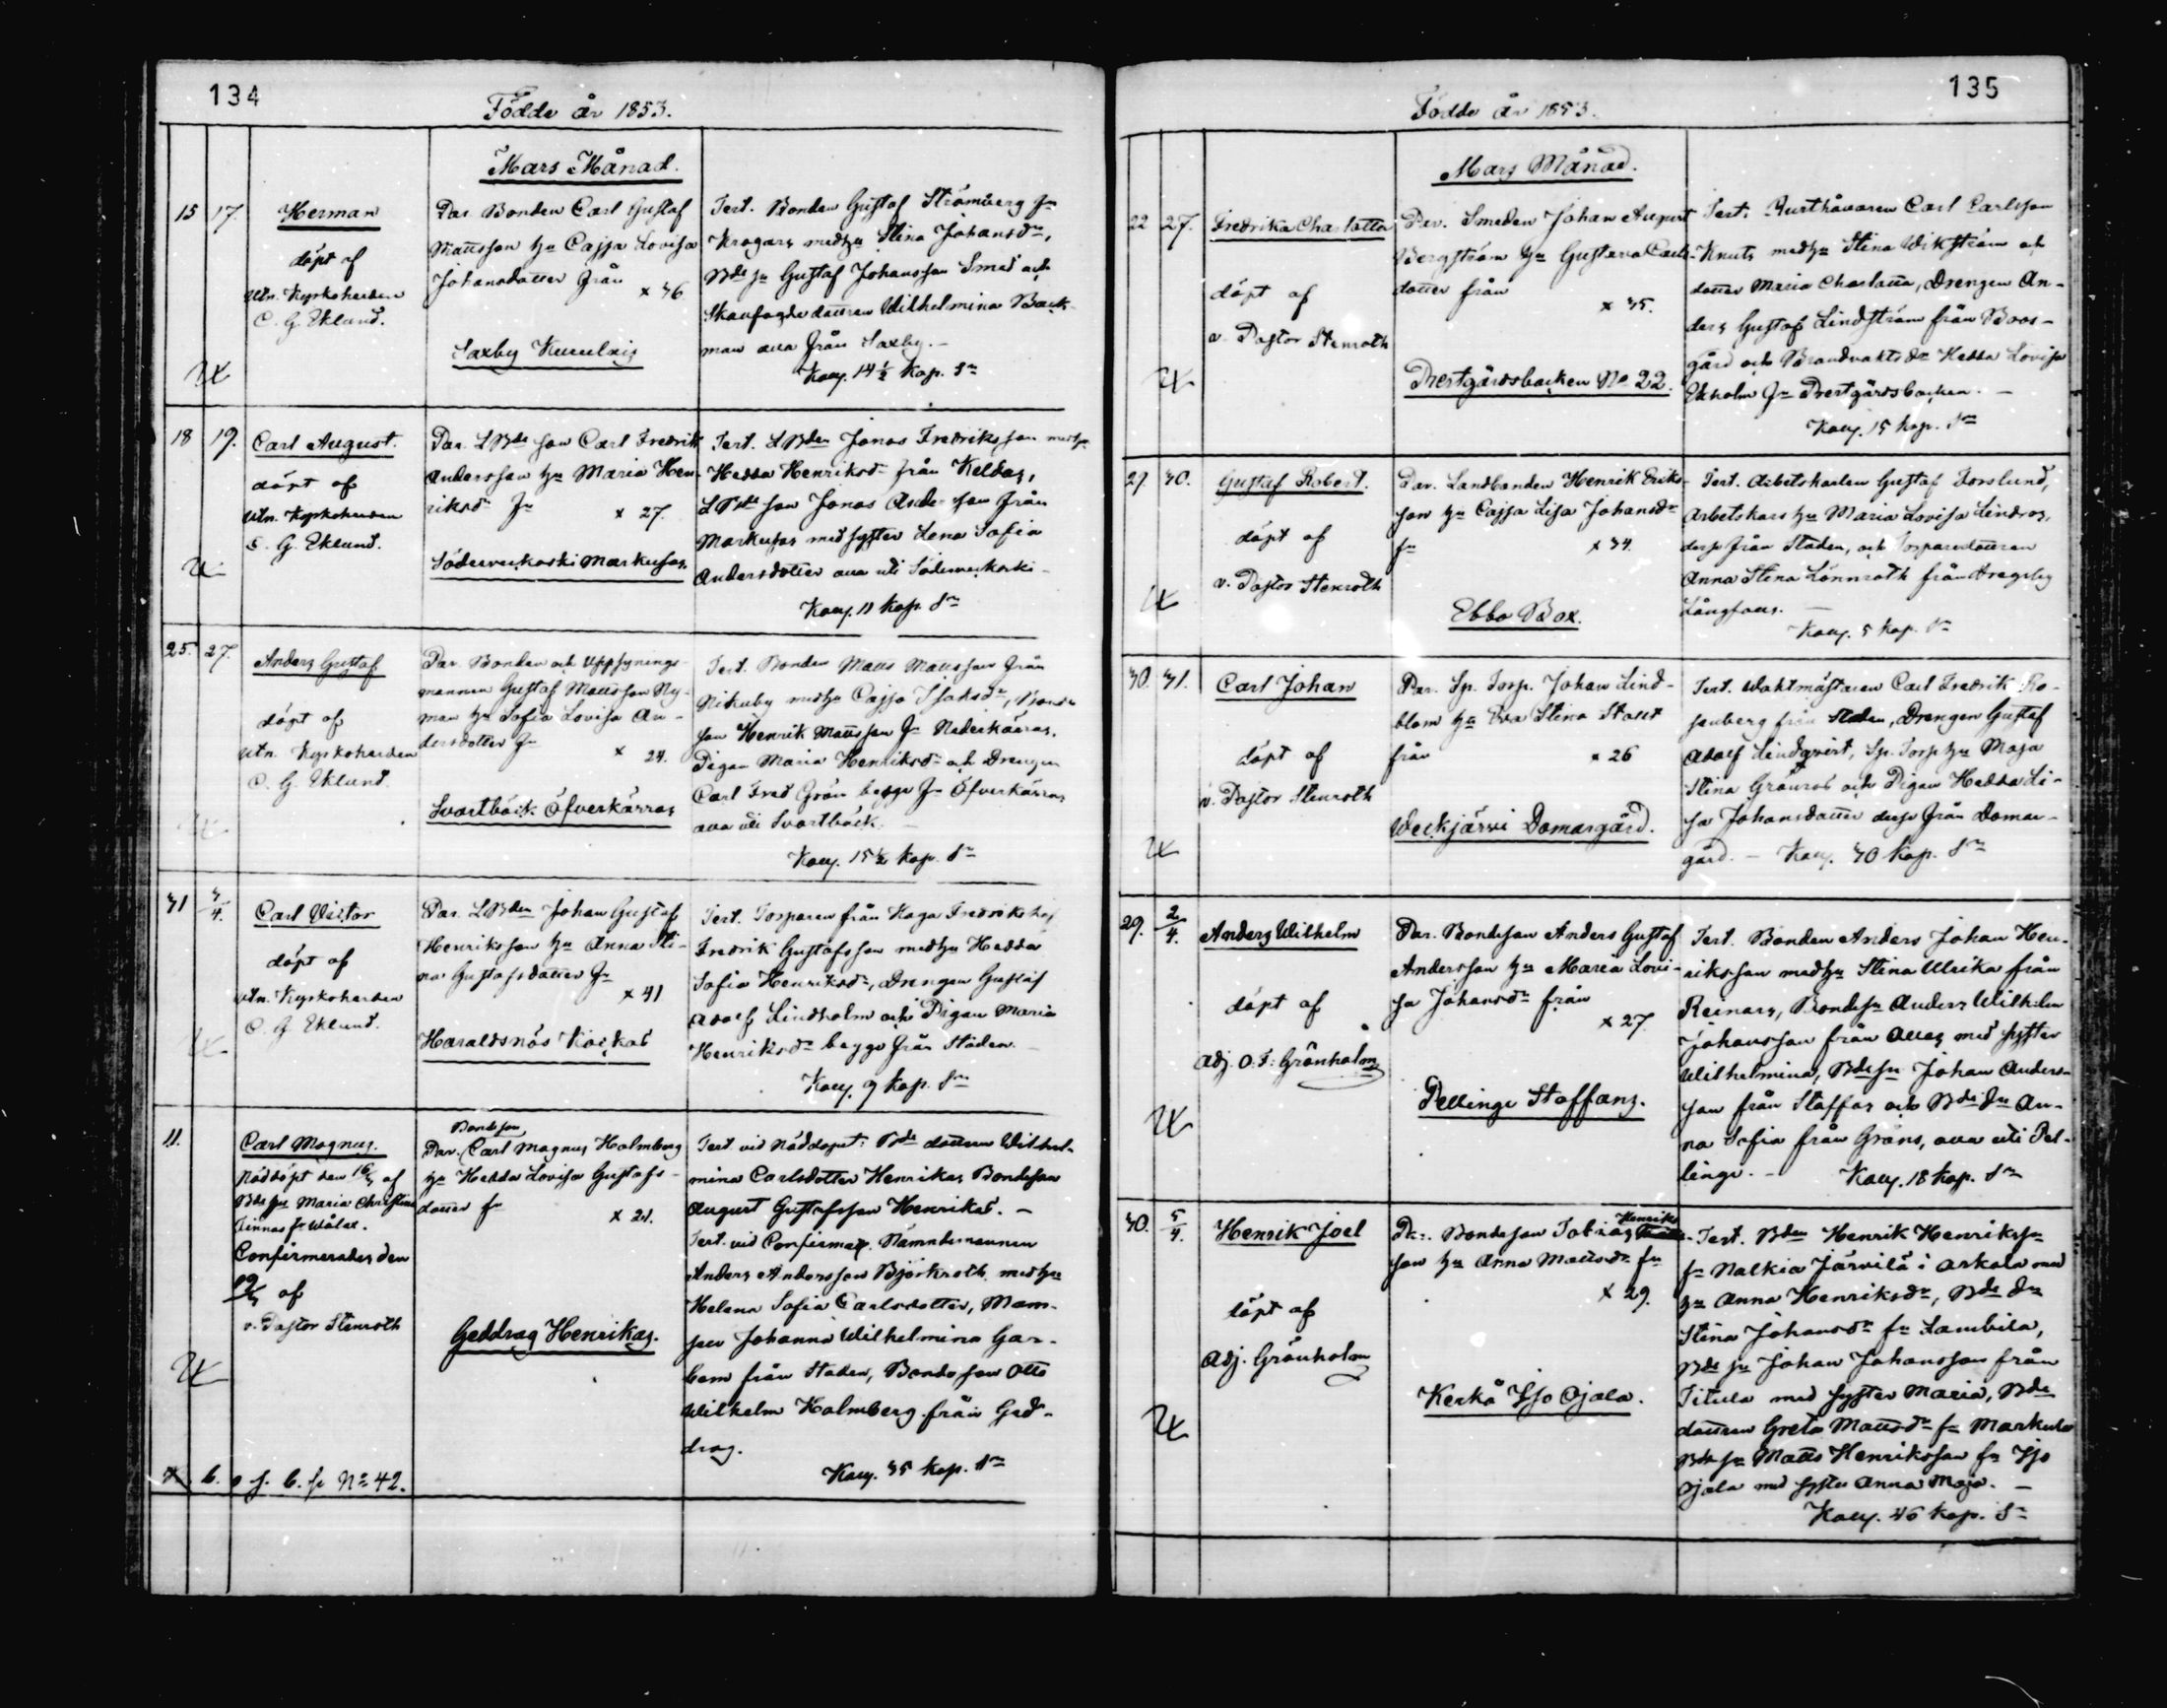 134
Födde år 1853.
Mars Månad.
15 17. Herman
döpt af
Utn. Kyrkoherden
C. G. Eklund.
Par. Bonden Carl Gustaf
Mattsson hu Cajsa Lovisa
Johansdotter från
x 36
Saxby
Test. Bonden Gustaf Strömberg fn
Krogars med hu Stina Johansdr,
Bde sn Gustaf Johansson Smeds och
Skoufogde dottren Wilhelmina Back-
man alla från Saxby.
Kolly. 14 1/2 kop. Sr
18 19. Carl August.
döpt af
Utn. Kyrkoherden
C. G. Eklund.
Par. LBde son Carl Fredrik
Andersson hu Maria Hen-
riksdr fn
x 27.
Söderveckoski Markusas.
Test. LBden Jonas Fredriksson med hu
Hedda Henriksdr från Keldas,
LBde son Jonas Andersson från
Markusas med syster Lena Sofia
Andersdotter alla uti Söderveckoski
Kolly. 11 kop. Sr
25. 27. Anders Gustaf
döpt af
Utn. Kyrkoherden
C. G. Eklund.
Par. Bonden och Uppsynings-
mannen Gustaf Mattsson Ny-
man hu Sofia Lovisa An-
dersdotter fn
x 24.
Svartbäck Öfverkärras
Test. Bonden Matts Mattsson från
Nikuby med hu Cajsa Isaksdr, Bonde
son Henrik Mattsson fn Nederkärras,
Pigan Maria Henriksdr och Drengen
Carl Fred Grön begge fn Öfverkärras
alla uti Svartbäck.
Kolly. 15 1/2 kop. Sr
31 3/4. Carl Victor
döpt af
Utn. Kyrkoherden
C. G. Eklund.
Par. LBden Johan Gustaf
Henriksson hu Anna Sti-
na Gustafsdotter fn
x 41
Haraldsnäs Kockas
Test. Torparen från Haga Fredrikshof
Fredrik Gustafsson med hu Hedda
Sofia Henriksdr, Drengen Gustaf
Adolf Lindholm och Pigan Maria
Henriksdr begge från Staden.
Kolly. 9 kop. Sr
11. Carl Magnus.
Nöddöpt den 16/3 af
Bde hu Maria Christina
Finnas fr Wålax.
Confirmerades den
19/3 af
v. Pastor Stenroth
Bondeson
Par. Carl Magnus Holmberg
hu Hedda Lovisa Gustafs-
dotter fn
x 21.
Geddrag Henrikas.
Test. vid nöddopet: Bde dottren Wilhel-
mina Carlsdotter Henrikas Bondeson
August Gustafsson Henrikas. -
Test. vid Confirmat. Nämndemannen
Anders Andersson Björkroth med hu
Helena Sofia Carlsdotter, Mam-
sell Johanna Wilhelmina Gar-
bom från Staden, Bondeson Otto
Wilhelm Holmberg från Ged-
drag.
Kolly. 35 kop. Sr
x b. o f. b. se No 42.
135
Födde år 1853.
Mars Månad.
22 27. Fredrika Charlotta
döpt af
v. Pastor Stenroth
Par. Smeden Johan August
Bergström hu Gustava Carls-
dotter från
x 35.
Prestgårdsbacken No 22.
Test. Carl Carlsson
Knuts med hu Stina Wikström och
dotter Maria Charlotta, Drengen An-
ders Gustaf Lindström från Boos-
gård och Brandvaktsdr Hedda Lovisa
Ekholm fn Prestgårdsbacken. -
Kolly. 15 kop. Sr
27. 30. Gustaf Robert.
döpt af
v. Pastor Stenroth
Par. Landbonden Henrik Eriks-
son hu Cajsa Lisa Johansdr
fn
x 34.
Ebbo Box.
Test. Arbetskarlen Gustaf Forslund,
Arbetskars hu Maria Lovisa Lindros,
desse från Staden, och Torparedottren
Anna Stina Lönnroth från Dragsby
Långfans. -
Kolly. 5 kop. Sr
30. 31. Carl Johan
döpt af
v. Pastor Stenroth
Par. Sp. Torp. Johan Lind-
blom hu Eva Stina Stolt
från
x 26
Weckjärvi Domargård.
Test. Waktmästaren Carl Fredrik Ro-
senberg från Staden, Drengen Gustaf
Adolf Lindqvist, Sp. Torp hu Maja
Stina Grönros och Pigan Hedda Li-
sa Johansdotter desse från Domar-
gård. - Kolly. 30 kop. Sr
29. 2/4. Anders Wilhelm
döpt af
Adj. O. F. Grönholm
Par. Bondeson Anders Gustaf
Andersson hu Maria Lovi-
sa Johansdr från
x 27.
Pellinge Staffans.
Test. Bonden Anders Johan Hen-
riksson med hu Stina Ulrika från
Reinars, Bondesn Anders Wilhelm
Johansson från Alles med syster
Wilhelmina, Bde sn Johan Anders-
son från Staffas och Bde dn An-
na Sofia från Gröns, alla uti Pel-
linge. - Kolly. 18 kop. Sr
30. 5/4. Henrik Joel
döpt af
Adj. Grönholm
Par. Bondeson Tobias Henriks-
son hu Anna Mattsdr fn
x 29.
Kerko Iso Ojala.
Test. Bden Henrik Henrikssn
fn Nalkia Järvilä i Arkala med
hu Anna Henriksdr, Bde dn
Stina Johansdr fn Lambila,
Bde sn Johan Johansson från
Titula med syster Maria, Bde
dottren Greta Mattsdr fn Markula
Bde sn Matts Henriksson fn Iso
Ojala med syster Anna Maja. -
Kolly. 46 kop. Sr